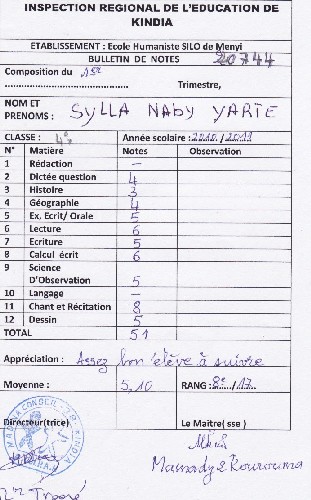 INSPECTION REGIONAL DE L'EDUCATION DE
KINDIA
ETABLISSEMENT : Ecole Humaniste SILO de Menyi
BULLETIN DE NOTES 20744
Composition du 1er
Trimestre,
NOM ET
PRENOMS : SYLLA NABY YARIE
CLASSE : 4e Année scolaire : 2010/2011
N° Matière Notes Observation
1 Rédaction —
2 Dictée question 4
3 Histoire 3
4 Géographie 4
5 Ex. Ecrit/ Orale 5
6 Lecture 6
7 Ecriture 5
8 Calcul écrit 6
9 Science
D'Observation 5
10 Langage —
11 Chant et Récitation 8
12 Dessin 5
TOTAL 51
Appréciation : Assez bon élève à suivre
Moyenne : 5,10 RANG : 8e/17
Directeur(trice) Le Maître(sse )
KINDIA
Mamady 2 Kourouma